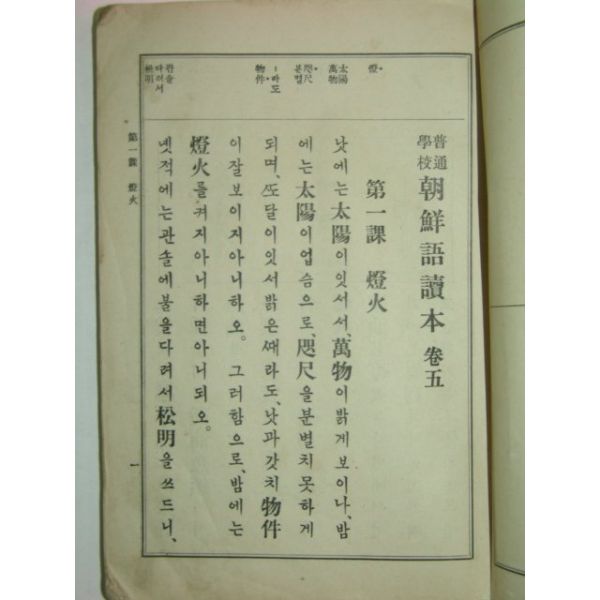 普通
學校
朝鮮語讀本 卷五
燈
第一課 燈火
太陽
萬物
낫에는太陽이잇서서、萬物이밝게보이나、밤
咫尺
분별
에는太陽이업슴으로、咫尺을분별치못하게
되며、ᄯᅩ달이잇서밝은ᄯᅢ라도、낫과갓치物件
—라도
物件
이잘보이지아니하오。그러함으로、밤에는
燈火를켜지아니하면아니되오。
관솔
다려서
松明
녯적에는관솔에불을다려서松明을쓰드니、
第一課 燈火
一